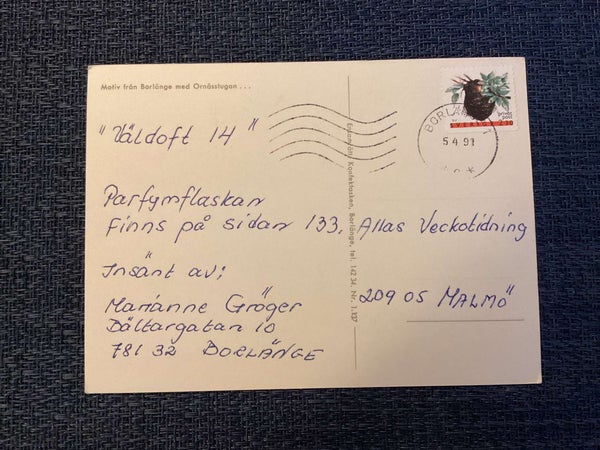 Motiv från Borlänge med Ornässtugan . . .
"Väldoft 14"
Parfymflaskan
Finns på sidan 133.
Insänt av;
Marianne Gröger
Bältargatan 10
781 32 BORLÄNGE
Konfektasken, Borlänge, tel. 142 34. Nr. 1.137
BORLÄNGE 1
5 4 91
SVERIGE
Allas Veckotidning
209 05 MALMÖ